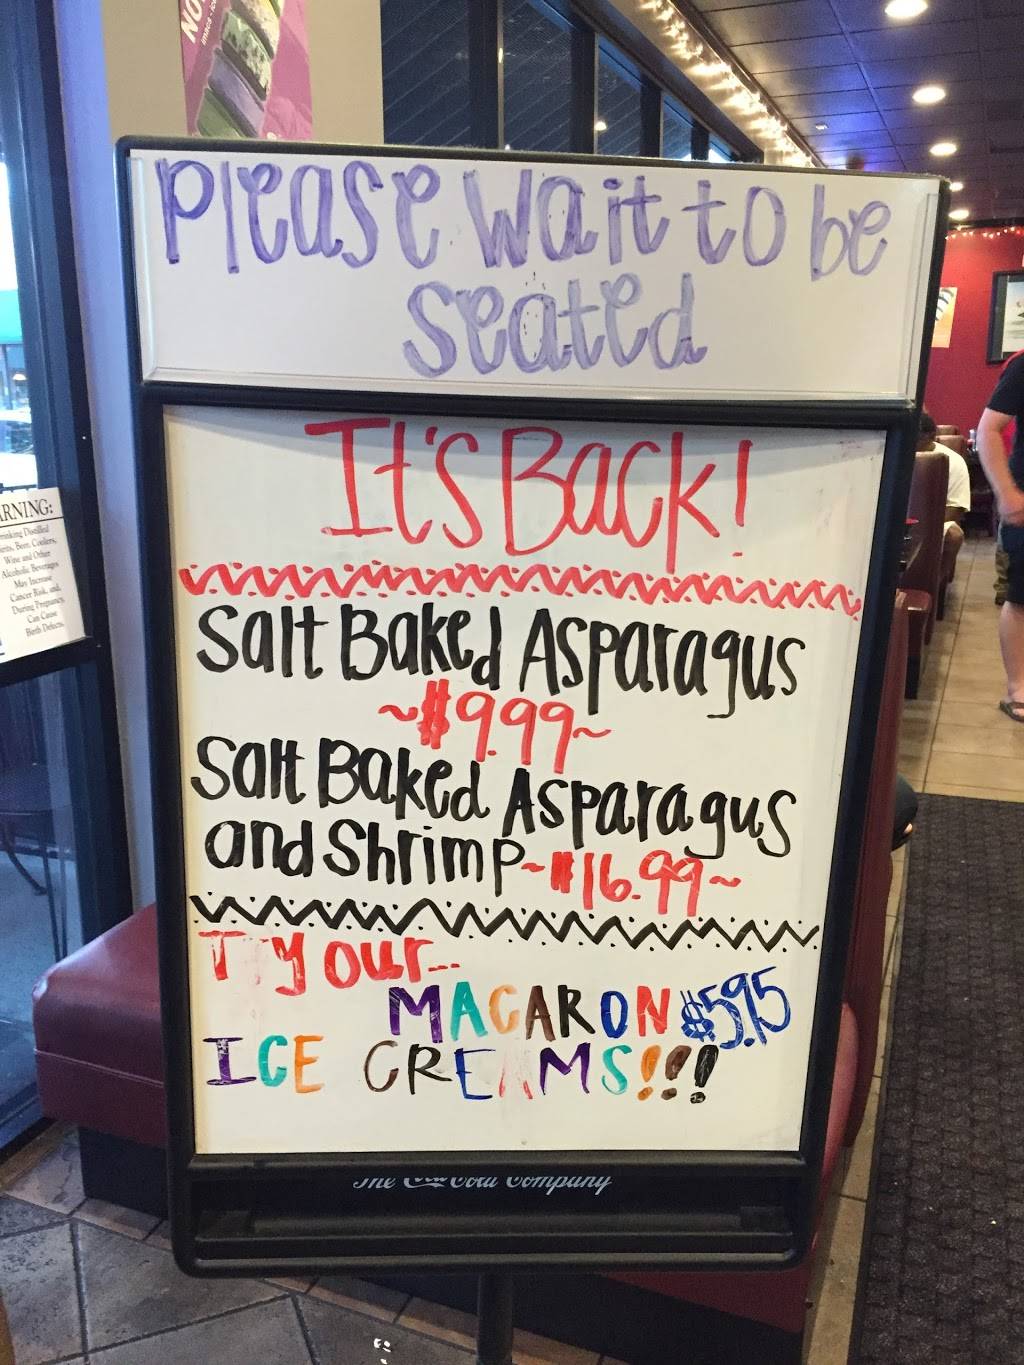 NO
Please wait to be
seated
It's Back!
Salt Baked Asparagus
~$9.99~
Salt Baked Asparagus
and Shrimp ~$16.99~
T y our...
MACARON $5.95
ICE CREAMS!!!
The Coca-Cola Company
ARNING:
rinking Distilled
Beer, Coolers,
Wine and Other
Alcoholic Beverages
May Increase
Cancer Risk, and,
During Pregnancy,
Can Cause
Birth Defects.